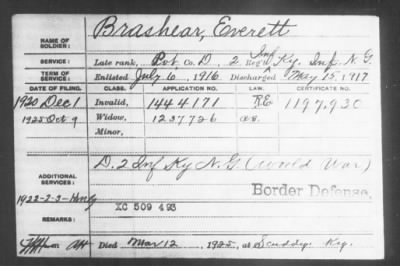 NAME OF SOLDIER: Brashear, Everett
SERVICE: Late rank, Pvt. Co. D, 2 Inf Reg't Ky. Inf. N. G.
TERM OF SERVICE: Enlisted July 6, 1916 Discharged May 15, 1917
DATE OF FILING. CLASS. APPLICATION NO. LAW. CERTIFICATE NO.
1920 Dec 1 Invalid, 1444171 1197930
1925 Oct 9 Widow, 1237726
Minor,
ADDITIONAL SERVICES: D. 2 Inf Ky N. G. (World War)
Border Defense.
XC 509 493
REMARKS:
Died Mar 12, 1925, at Scuddy, Ky.